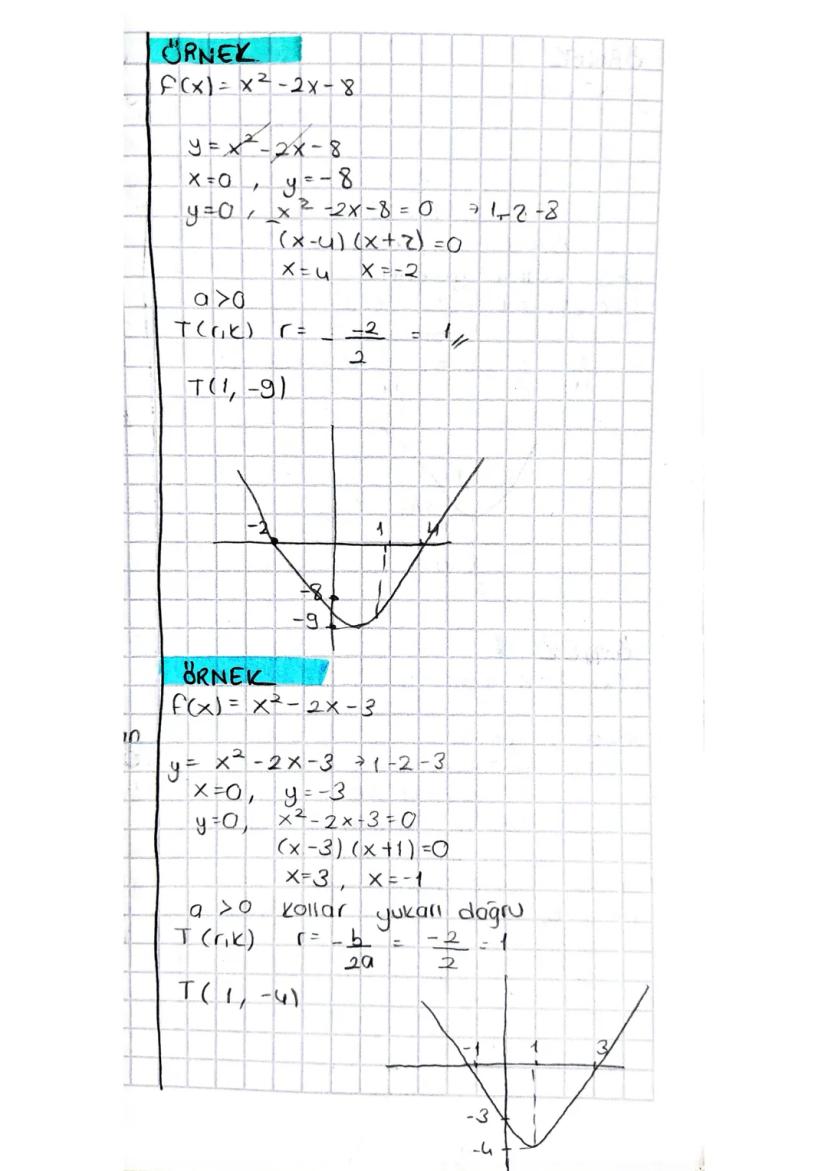 ÖRNEK
f(x) = x² - 2x - 8
y = x² - 2x - 8
x=0 , y = -8
y=0 , x² - 2x - 8 = 0 → 1, -2 -8
(x-4) (x+2) = 0
x=4 x=-2
a>0
T(r,k) r = - -2/2 = 1//
T(1, -9)
-2 1 4
-8
-9
ÖRNEK
f(x) = x² - 2x - 3
in
y = x² - 2x - 3 → 1 -2 -3
x=0, y = -3
y=0, x² - 2x - 3 = 0
(x-3) (x+1) = 0
x=3, x=-1
a >0 kollar yukarı doğru
T(r,k) r = - b/2a = -2/2 = 1
T( 1, -4)
-1 1 3
-3
-4